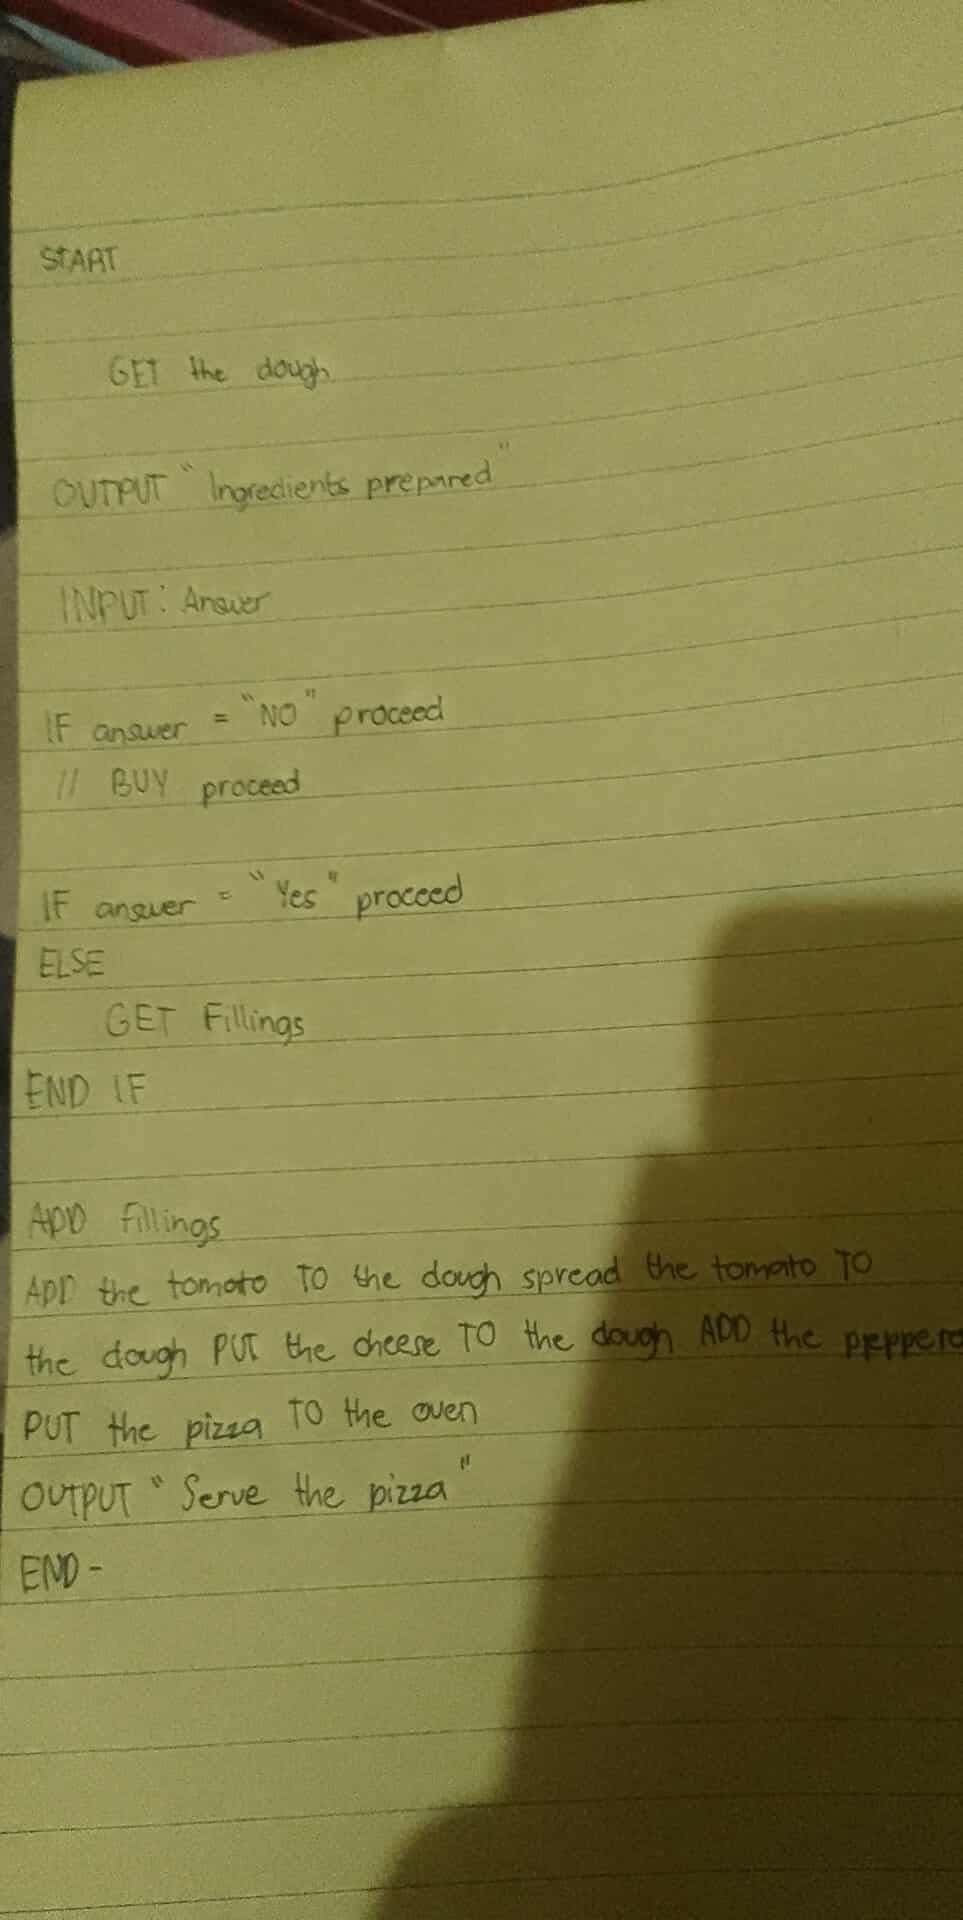 START
GET the dough
OUTPUT "Ingredients prepared"
INPUT: Answer
IF answer = "NO" proceed
// BUY proceed
IF answer = "Yes" proceed
ELSE
GET Fillings
END IF
ADD fillings
ADD the tomato TO the dough spread the tomato TO
the dough PUT the cheese TO the dough ADD the
PUT the pizza TO the oven
OUTPUT "Serve the pizza"
END-